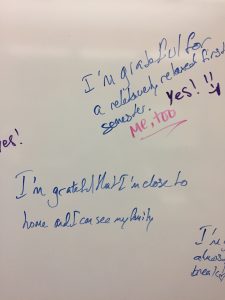 I'm grateful for
a relatively relaxed first
semester. yes! !!
me, too
es!
I'm grateful that I'm close to
home and I can see my family
I'm